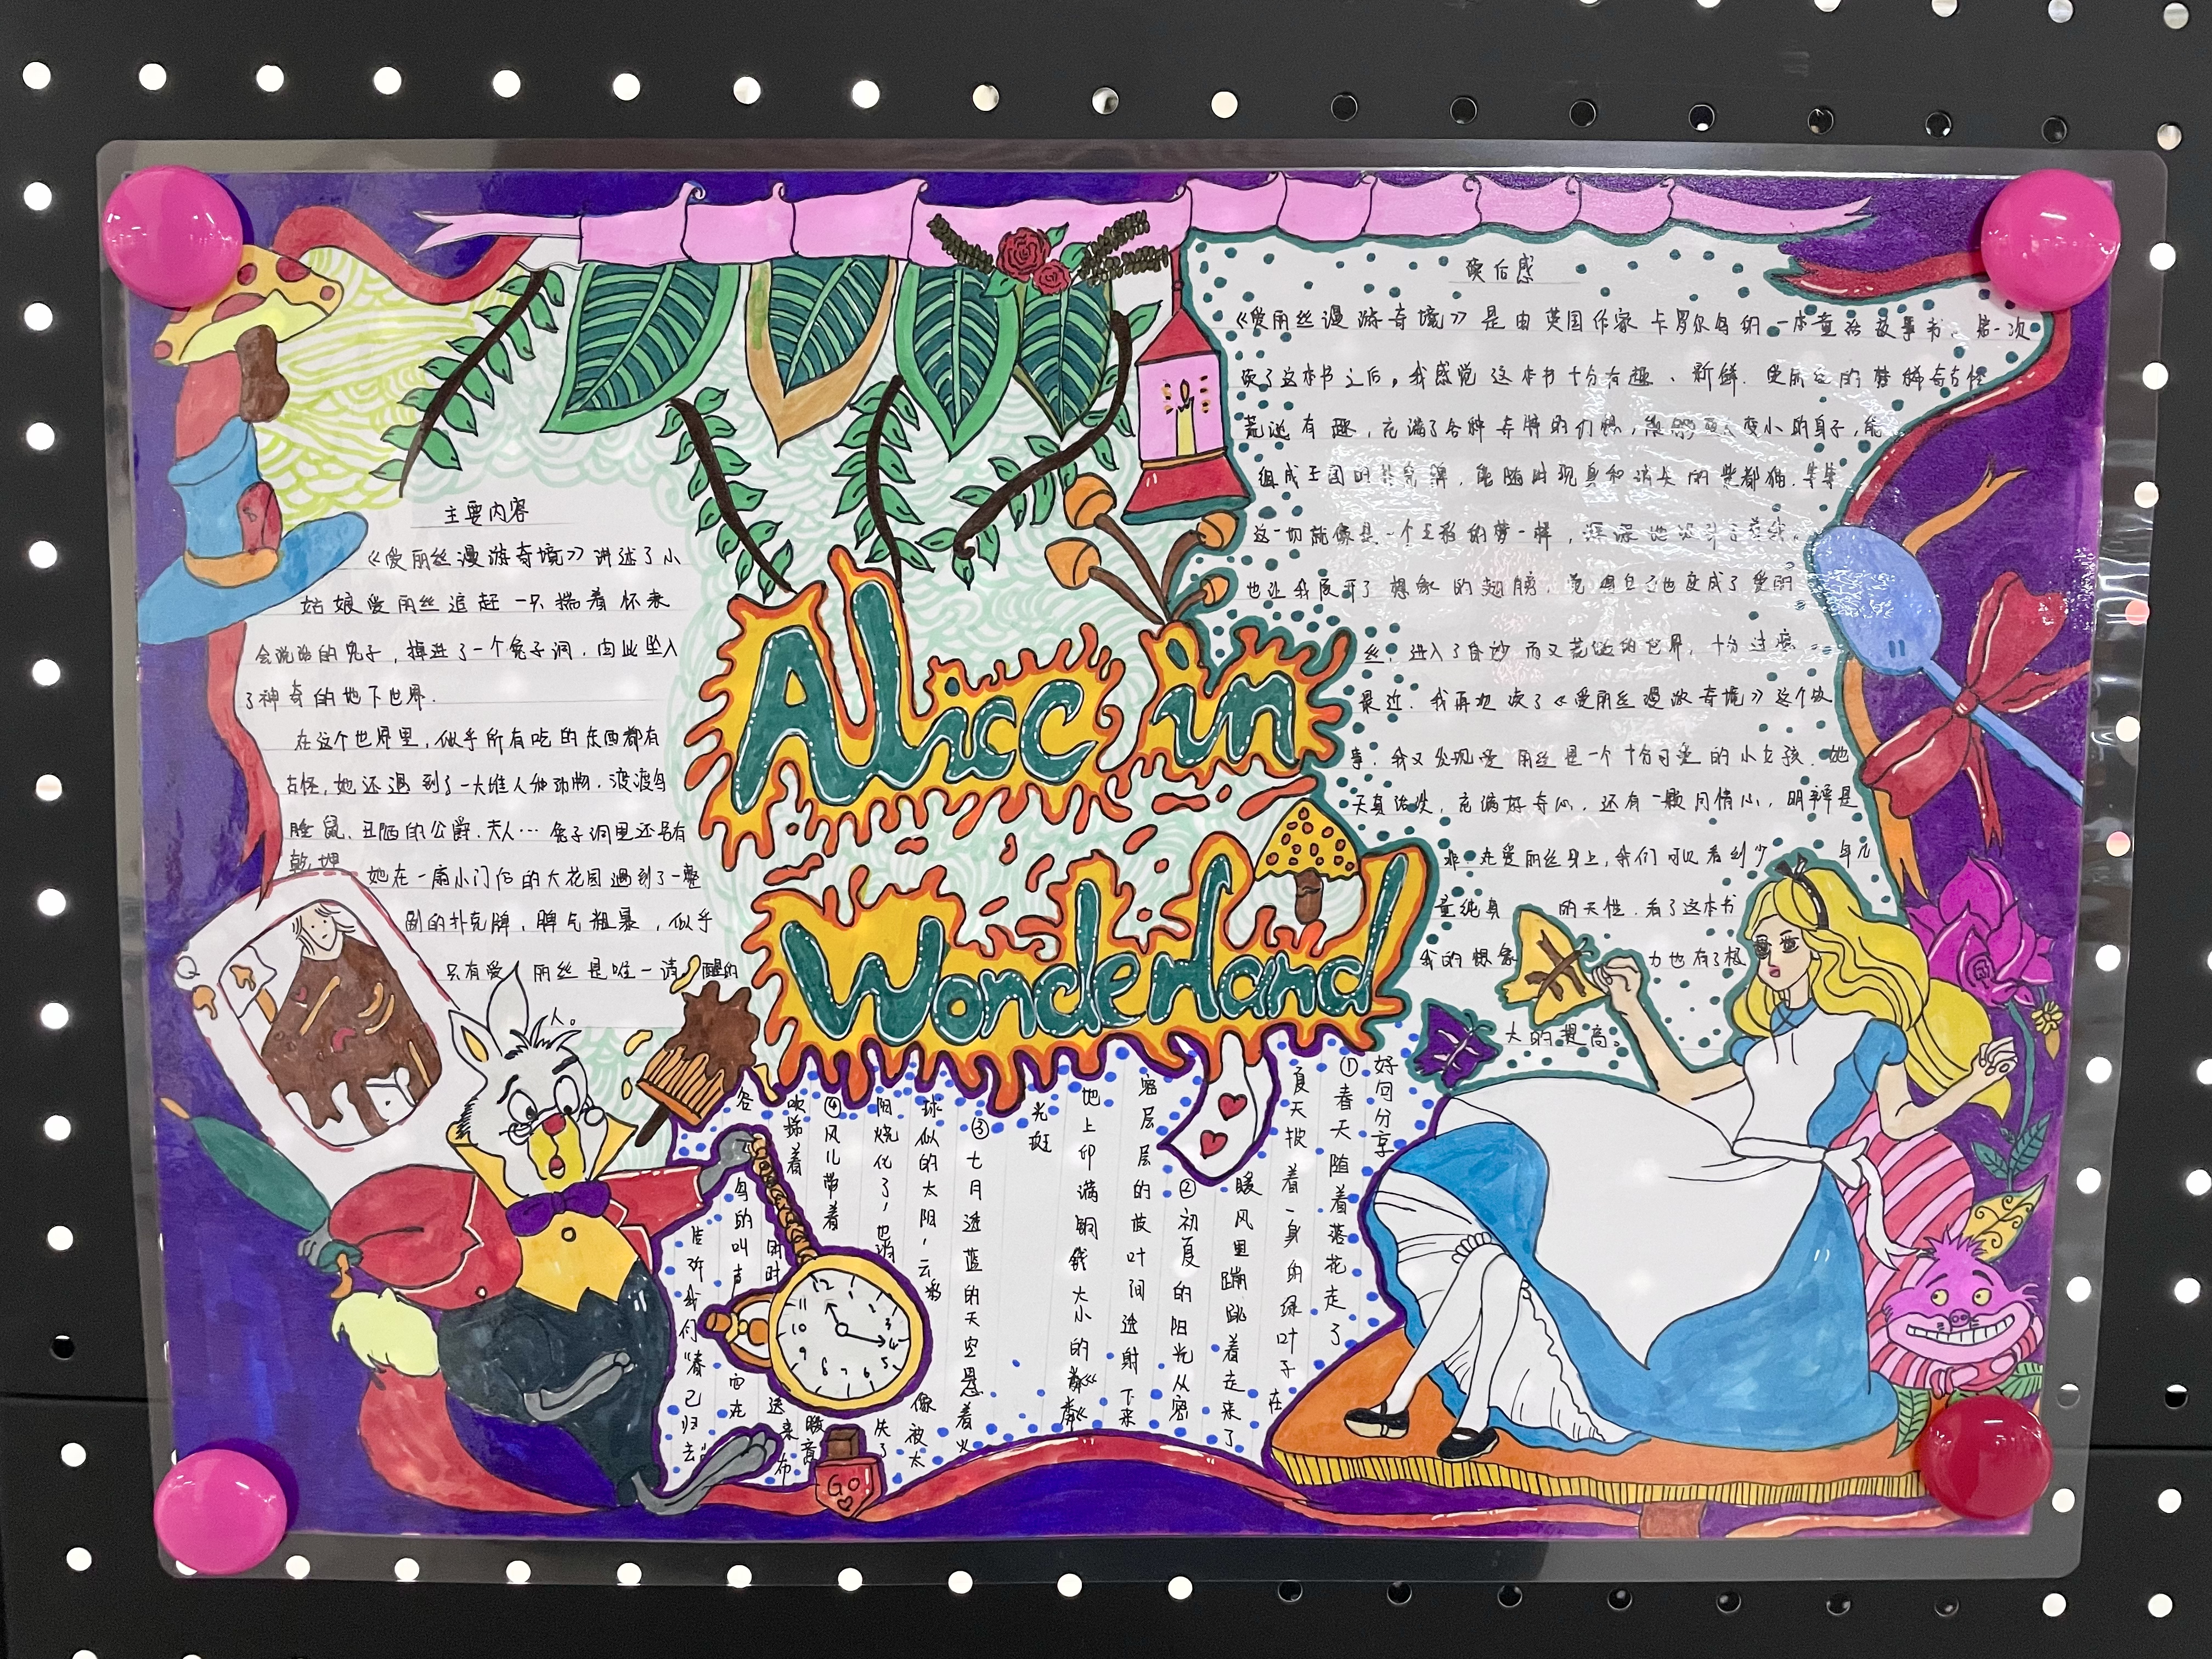 Alice in
Wonderland
主要内容
《爱丽丝漫游奇境》讲述了小
姑娘爱丽丝追赶一只揣着怀表
会说话的兔子，掉进了一个兔子洞，由此坠入
了神奇的地下世界.
在这个世界里，似乎所有吃的东西都有
古怪，她还遇到了一大堆人和动物.渡渡鸟
睡鼠、丑陋的公爵.夫人…兔子洞里还另有
乾坤
她在一扇小门后的大花园遇到了一整
副的扑克牌，脾气粗暴，似乎
只有爱丽丝是唯一清醒的
人。
读后感
《爱丽丝漫游奇境》是由英国作家卡罗尔写的一本童话故事书、第一次
读了这本书之后，我感觉这本书十分有趣、新鲜.爱丽丝的梦稀奇古怪
荒诞有趣，充满了各种奇特的幻想，能够变大变小的身子，能
组成王国的扑克牌，能随时现身和消失的柴郡猫.等等
这一切就像是一个五彩的梦一样，深深地吸引了我.
也让我展开了想象的翅膀，觉得自己也变成了爱丽
丝，进入了奇妙而又荒诞的世界，十分过瘾。
最近.我再次读了《爱丽丝漫游奇境》这个故
事.我又发现爱丽丝是一个十分可爱的小女孩.她
天真活泼，充满好奇心，还有一颗同情心，明辨是
非.在爱丽丝身上，我们可以看到少年儿
童纯真的天性.看了这本书
我的想象力也有了极
大的提高。
好句分享
①春天随着落花走了
夏天披着一身的绿叶子在
暖风里蹦跳着走来了
②初夏的阳光从密
密层层的枝叶间透射下来
地上印满铜钱大小的粼粼
光斑
③七月透蓝的天空悬着火
球似的太阳，云彩像被太
阳烧化了，也消失了
④风儿带着暖意
吹拂着
送来布
谷鸟的叫声
同时
也在
告诉我们“春已归去”
12
1
2
3
4
5
6
7
8
9
10
11
GO
Q